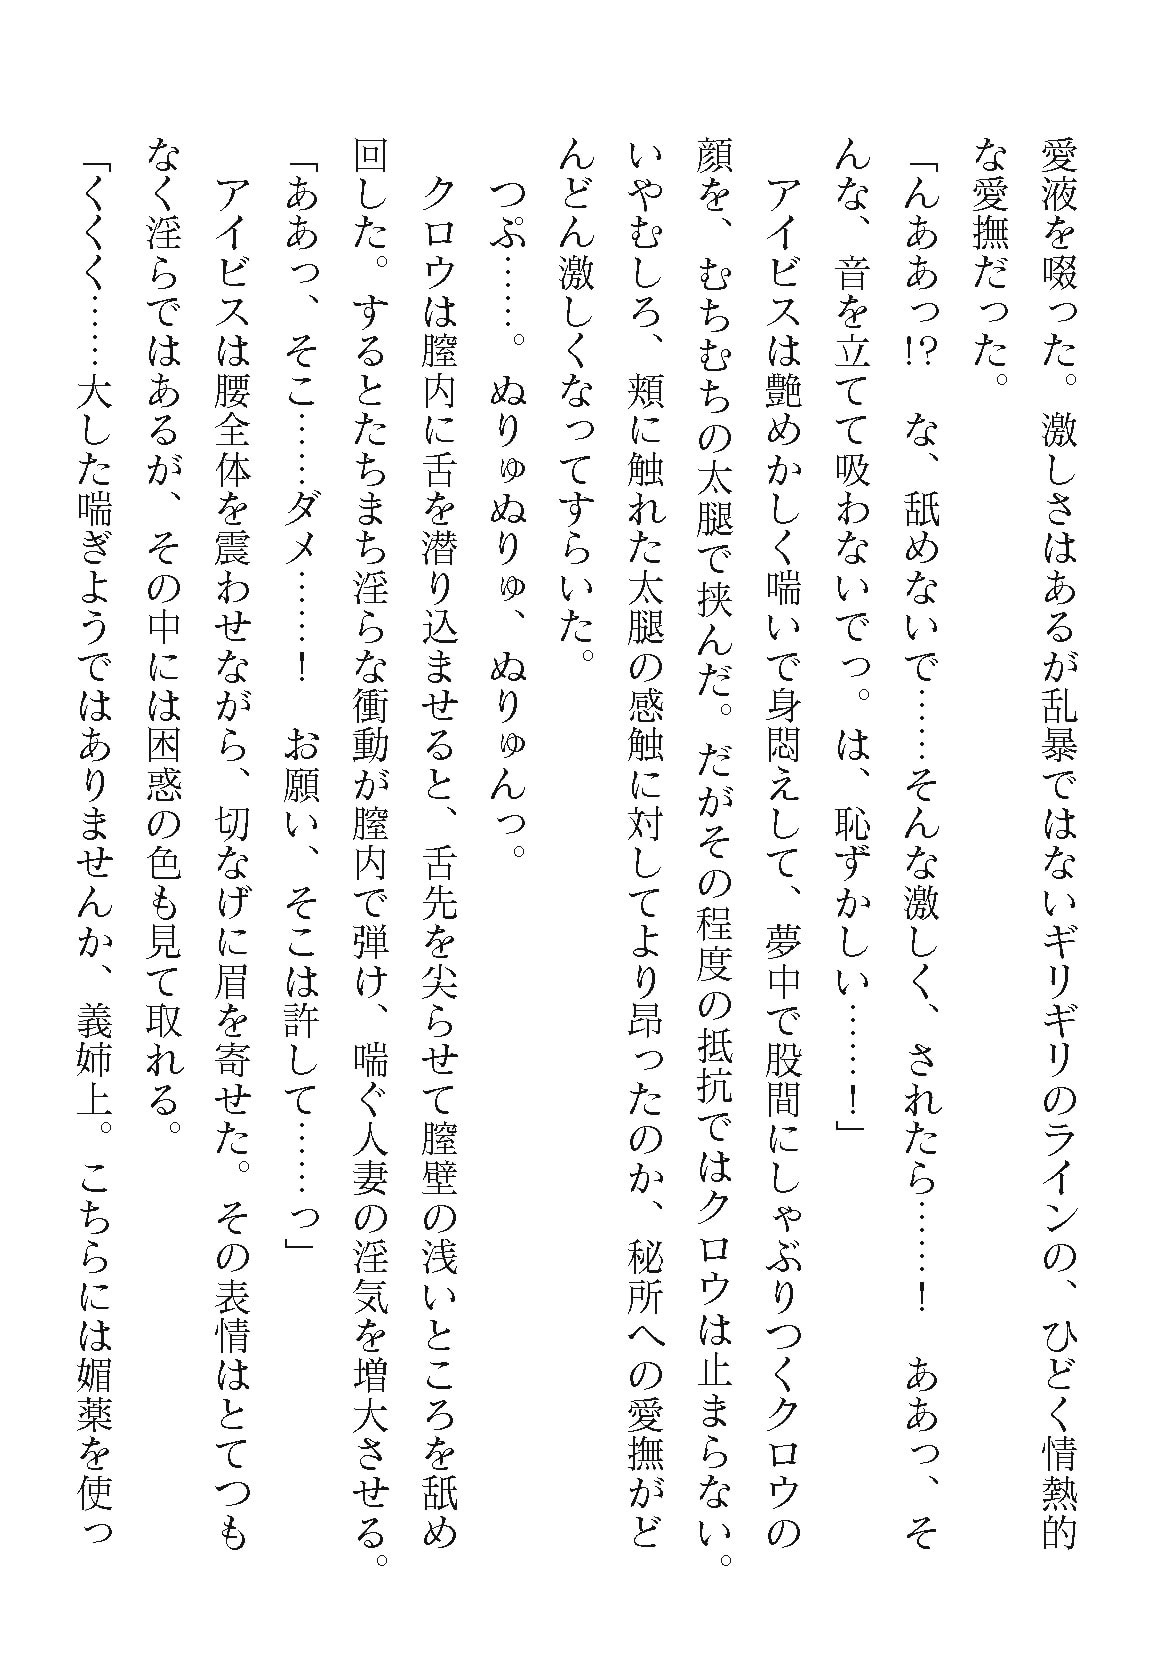 愛液を啜った。激しさはあるが乱暴ではないギリギリのラインの、ひどく情熱的
な愛撫だった。
「んああっ!?　な、舐めないで……そんな激しく、されたら……！　ああっ、そ
んな、音を立てて吸わないでっ。は、恥ずかしい……！」
　アイビスは艶めかしく喘いで身悶えして、夢中で股間にしゃぶりつくクロウの
顔を、むちむちの太腿で挟んだ。だがその程度の抵抗ではクロウは止まらない。
いやむしろ、頬に触れた太腿の感触に対してより昂ったのか、秘所への愛撫がど
んどん激しくなってすらいた。
　つぷ……。ぬりゅぬりゅ、ぬりゅんっ。
　クロウは膣内に舌を潜り込ませると、舌先を尖らせて膣壁の浅いところを舐め
回した。するとたちまち淫らな衝動が膣内で弾け、喘ぐ人妻の淫気を増大させる。
「ああっ、そこ……ダメ……！　お願い、そこは許して……っ」
　アイビスは腰全体を震わせながら、切なげに眉を寄せた。その表情はとてつも
なく淫らではあるが、その中には困惑の色も見て取れる。
「くくく……大した喘ぎようではありませんか、義姉上。こちらには媚薬を使っ